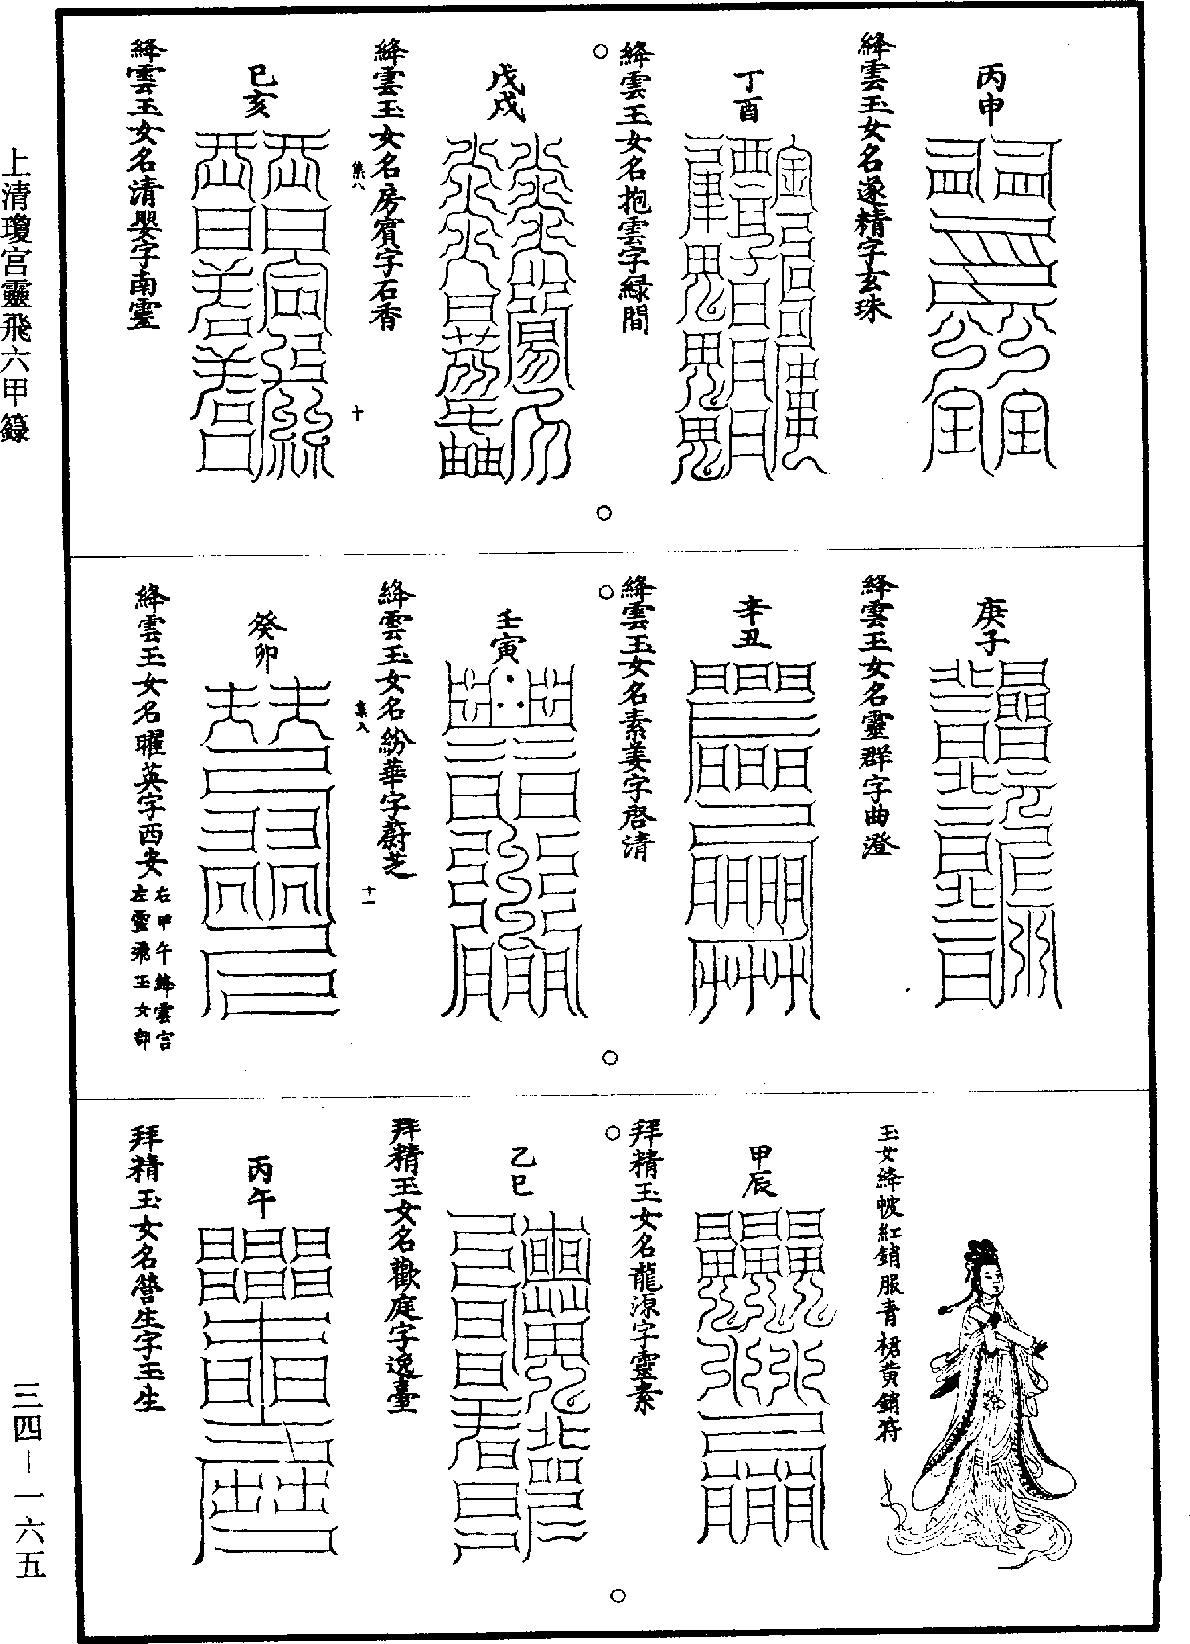 丙申
絳雲玉女名遂精字玄珠
丁酉
絳雲玉女名抱雲字綠間
戊戌
絳雲玉女名房賓字石香
巳亥
絳雲玉女名清嬰字南靈
集八
十
庚子
絳雲玉女名靈群字曲澄
辛丑
絳雲玉女名素姜字啓清
壬寅
絳雲玉女名紛華字蔚芝
集八
十一
癸卯
絳雲玉女名曜英字西安
右甲午絳雲宮
左靈飛玉女部
玉女絳帔紅銷服青裙黃銷符
甲辰
拜精玉女名龍源字靈素
乙巳
拜精玉女名歡庭字逸臺
丙午
拜精玉女名營生字玉生
上清瓊宮靈飛六甲籙
三四－一六五